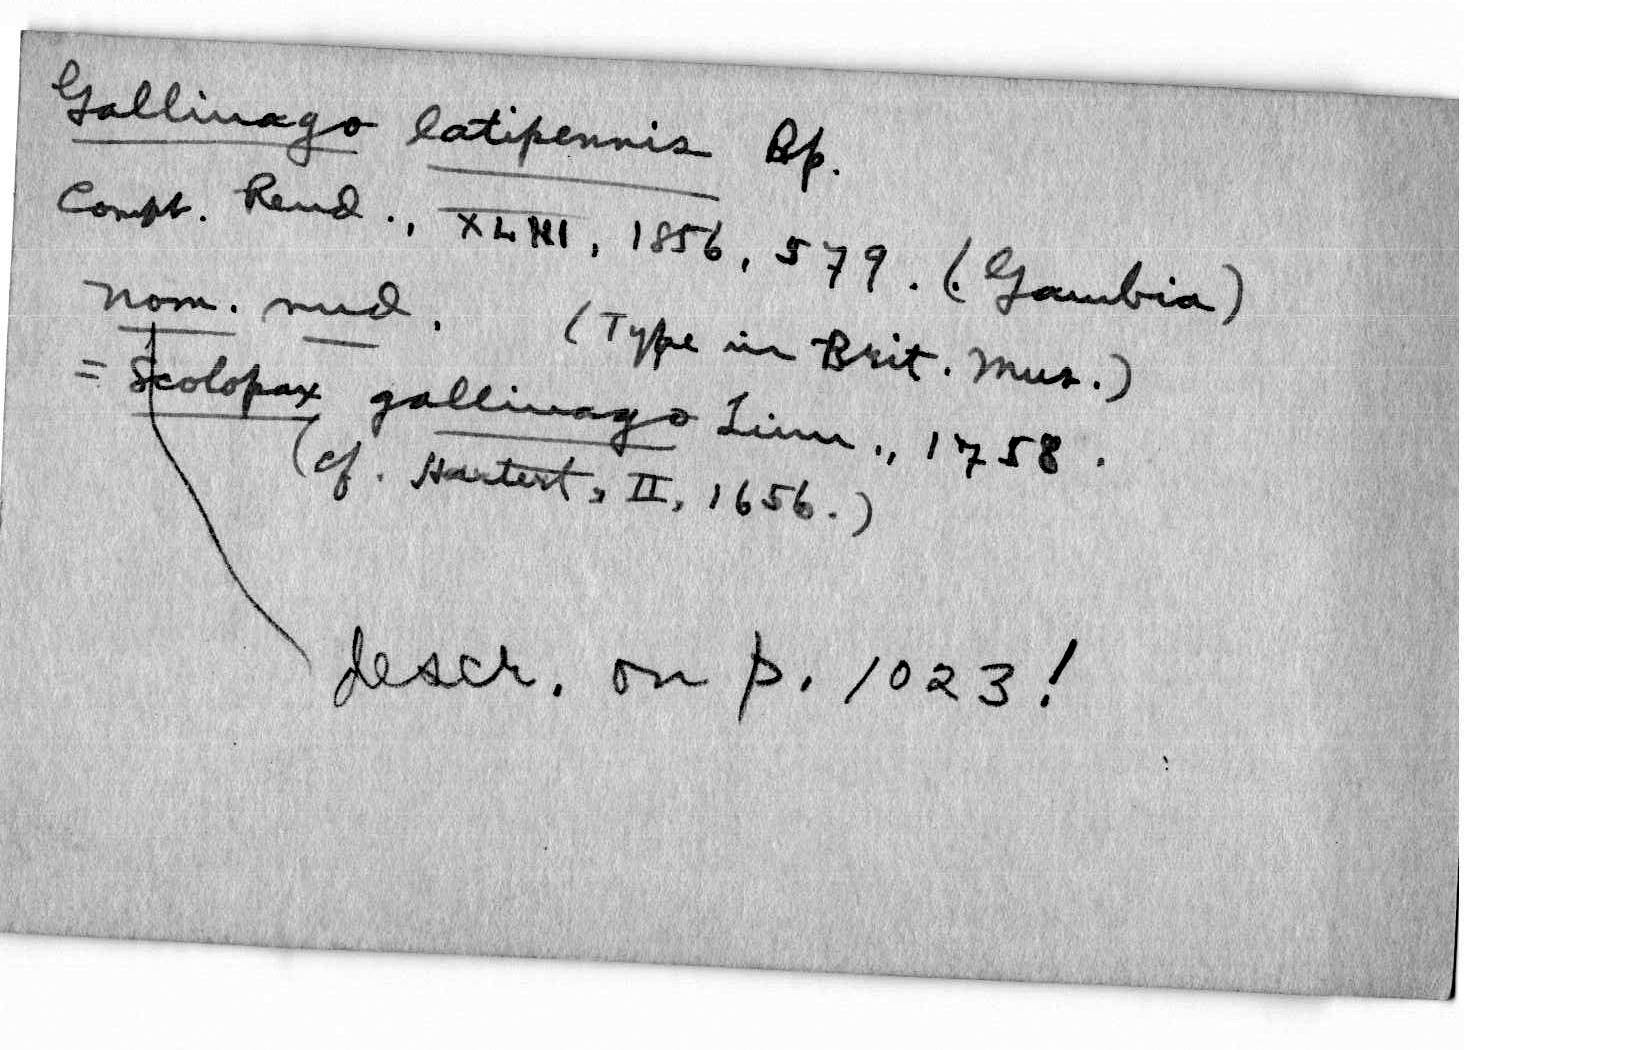 Gallinago latipennis Bp.
Compt. Rend., XLIII, 1856, 579. (Gambia)
nom. nud. (Type in Brit. Mus.)
= Scolopax gallinago Linn., 1758.
(cf. Hartert, II, 1656.)
descr. on p. 1023!